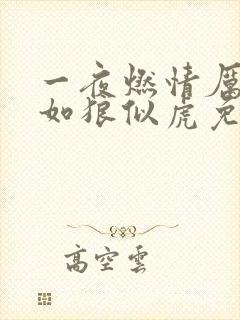 一夜燃情厲
如狼似虎兔
高空雲